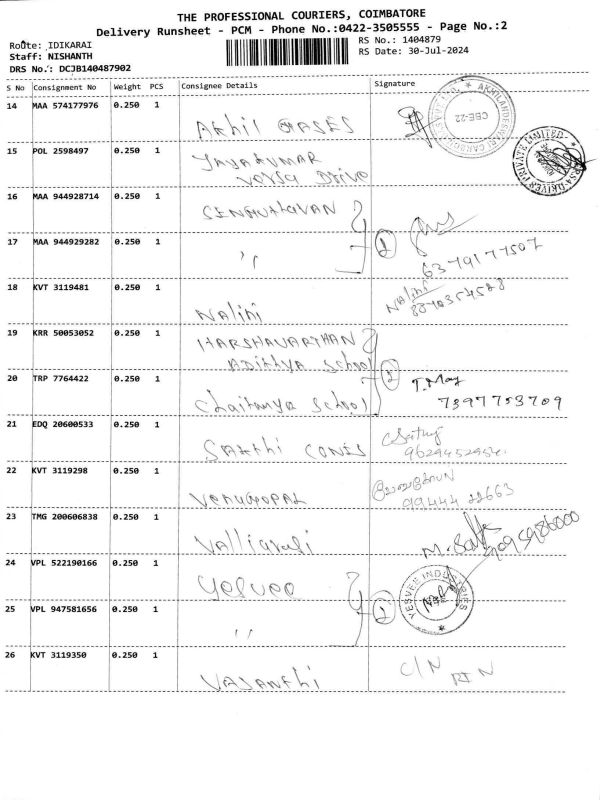 THE PROFESSIONAL COURIERS, COIMBATORE
Delivery Runsheet - PCM - Phone No.:0422-3505555 - Page No.:2
Route: IDIKARAI
RS No.: 1404879
Staff: NISHANTH
RS Date: 30-Jul-2024
DRS No.: DCJB140487902
S No Consignment No Weight PCS Consignee Details Signature
14 MAA 574177976 0.250 1 Akhil GASES
CBE-22
15 POL 2598497 0.250 1 JAYAKUMAR
Versa Drive
VERSA DRIVES PRIVATE LIMITED
16 MAA 944928714 0.250 1 SENGUTTUVAN
17 MAA 944929282 0.250 1 " 2
6379177507
18 KVT 3119481 0.250 1 NAlini Nalini
19 KRR 50053052 0.250 1 HARSHAVARTHAN
Adithya School
20 TRP 7764422 0.250 1 Chaitanya School 2 T. May
7397753709
21 EDQ 20600533 0.250 1 SAkthi CONES
9629452954.
22 KVT 3119298 0.250 1 VENUGOPAL வேணுகோபால்
99444 22663
23 TMG 200606838 0.250 1 Valliarasi
24 VPL 522190166 0.250 1 Yesvee
YESVEE INDUSTRIES
25 VPL 947581656 0.250 1 " 2
26 KVT 3119350 0.250 1 VASANthi C/N
RTN